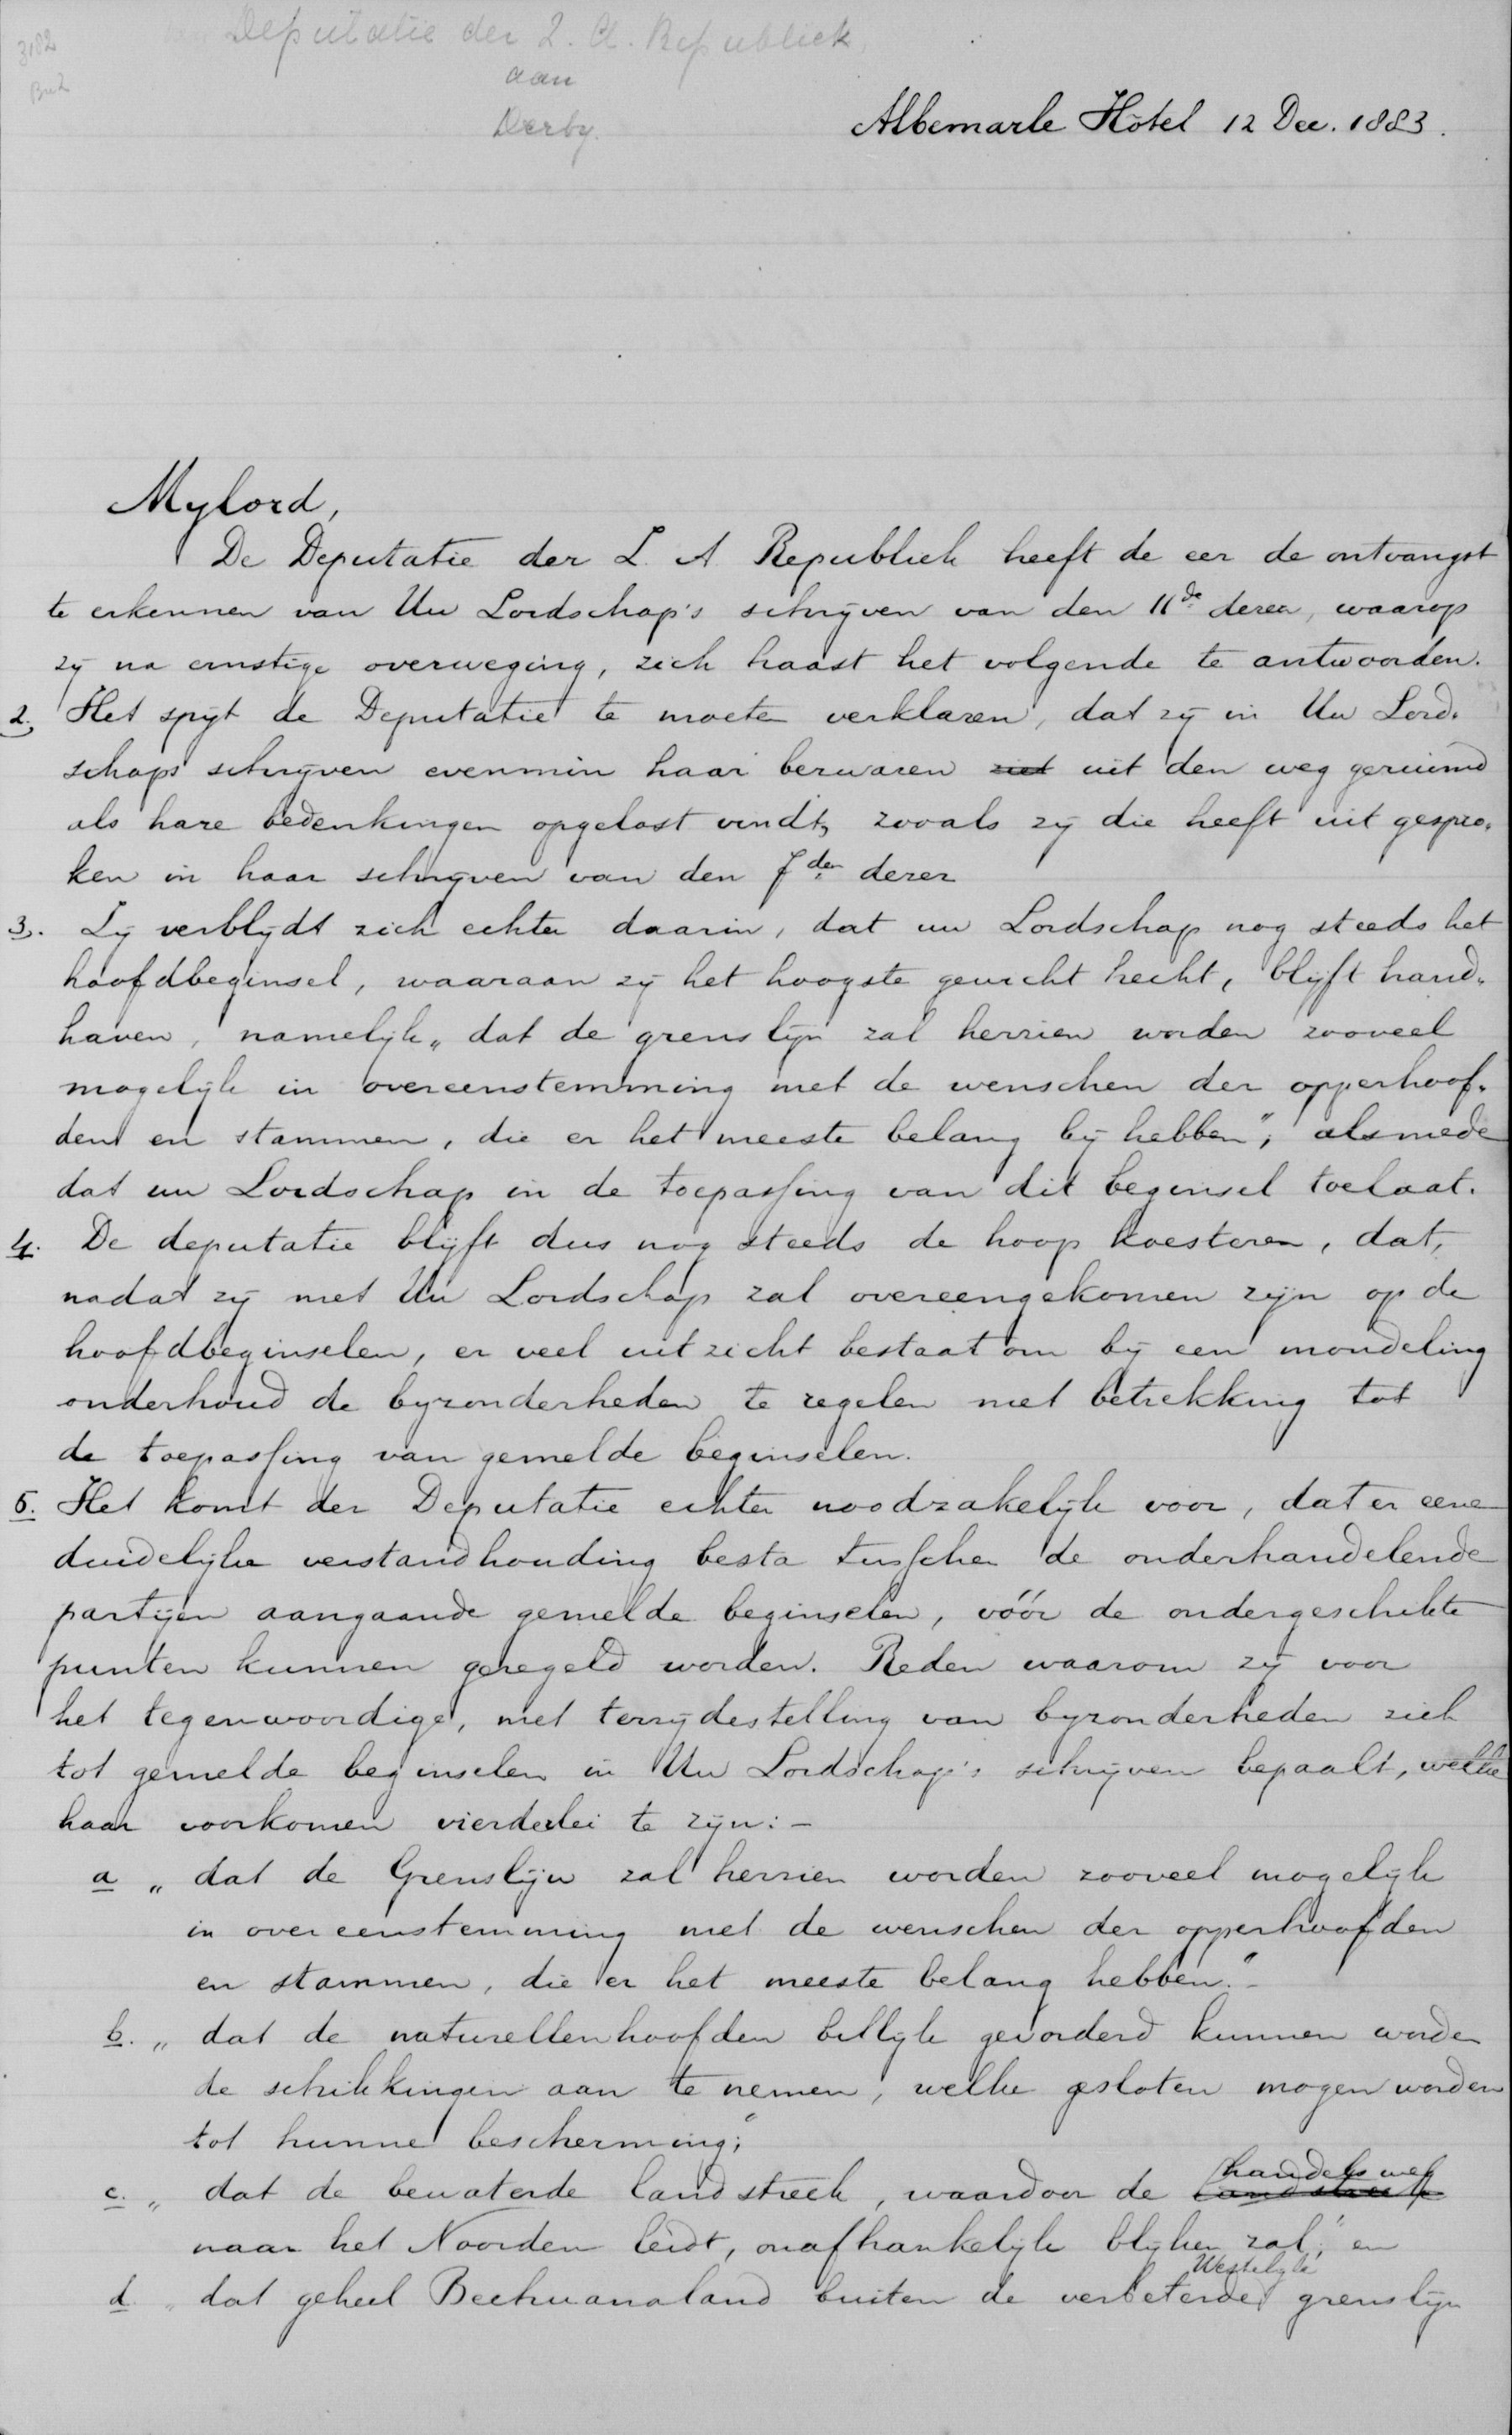 3182
Deputatie der Z. A. Republiek
aan
Derby.
Albemarle Hôtel 12 Dec. 1883.
Mylord,
De Deputatie der Z. A Republiek heeft de eer de ontvangst
te erkennen van Uw Lordschap's schrijven van den 11de dezer, waarop
zij na ernstige overweging, zich haast het volgende te antwoorden.
2. Het spijt de Deputatie te moeten verklaren, dat zij in Uw Lord-
schaps schrijven evenmin haar bezwaren niet uit den weg geruimd
als hare bedenkingen opgelost vindt, zooals zij die heeft uit gespro-
ken in haar schrijven van den 7den dezer
3. Zij verblijdt zich echter daarin, dat uw Lordschap nog steeds het
hoofdbeginsel, waaraan zij het hoogste gewicht hecht, blijft hand-
haven, namelijk „dat de grenslijn zal herzien worden zooveel
mogelijk in overeenstemming met de wenschen der opperhoof-
den en stammen, die er het meeste belang bij hebben", alsmede
dat uw Lordschap in de toepassing van dit beginsel toelaat.
4. De deputatie blijft dus nog steeds de hoop koesteren, dat,
nadat zij met Uw Lordschap zal overeengekomen zijn op de
hoofdbeginselen, er veel uitzicht bestaat om bij een mondeling
onderhoud de byzonderheden te regelen met betrekking tot
de toepassing van gemelde beginselen.
5. Het komt der Deputatie echter noodzakelijk voor, dat er eene
duidelijke verstandhouding besta tusschen de onderhandelende
partijen aangaande gemelde beginselen, vóór de ondergeschikte
punten kunnen geregeld worden. Reden waarom zij voor
het tegenwoordige, met terzijdestelling van byzonderheden zich
tot gemelde beginselen in Uw Lordschap's schrijven bepaalt, welke
haar voorkomen vierderlei te zijn:-
a „ dat de Grenslijn zal herzien worden zooveel mogelijk
in overeenstemming met de wenschen der opperhoofden
en stammen, die er het meeste belang hebben."-
b. „ dat de naturellenhoofden billijk gevorderd kunnen worden
de schikkingen aan te nemen, welke gesloten mogen worden
tot hunne bescherming;"
handelsweg
c. „ dat de bewaterde landstreek, waardoor de landstreek
naar het Noorden leidt, onafhankelijk blijven zal;" en
Westelijke
d „ dat geheel Bechuanaland buiten de verbeterde grenslijn